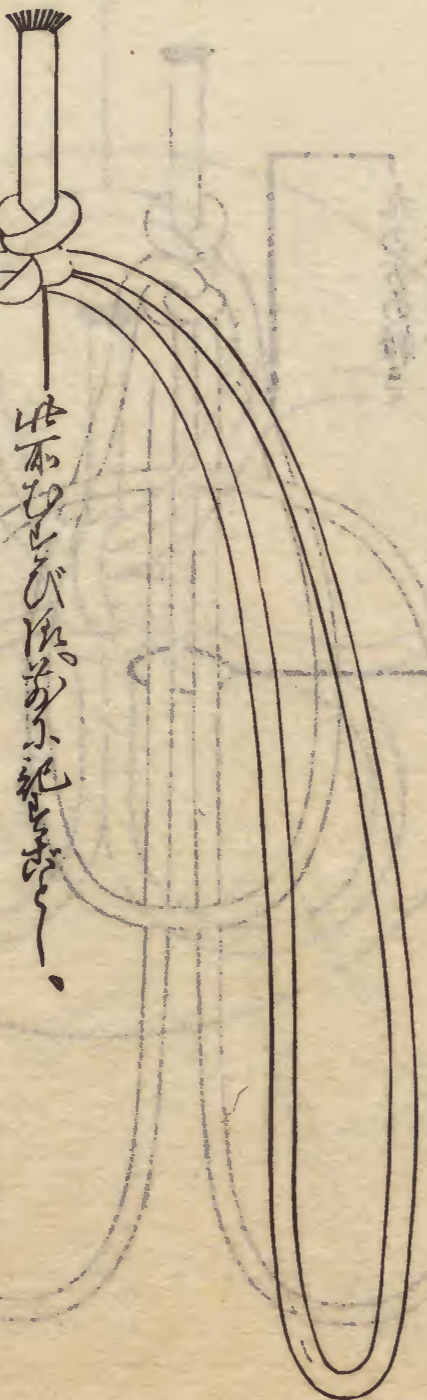 此所むすび様。前に記すごとし。